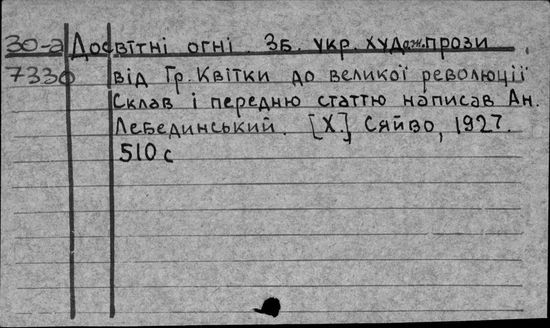 30-а Досвітні огні. Зб. укр. худож. прози
7330 від Гр. Квітки до великої революції
Склав і передню статтю написав Ан.
Лебединський. [Х.] Сяйво, 1927.
510 с